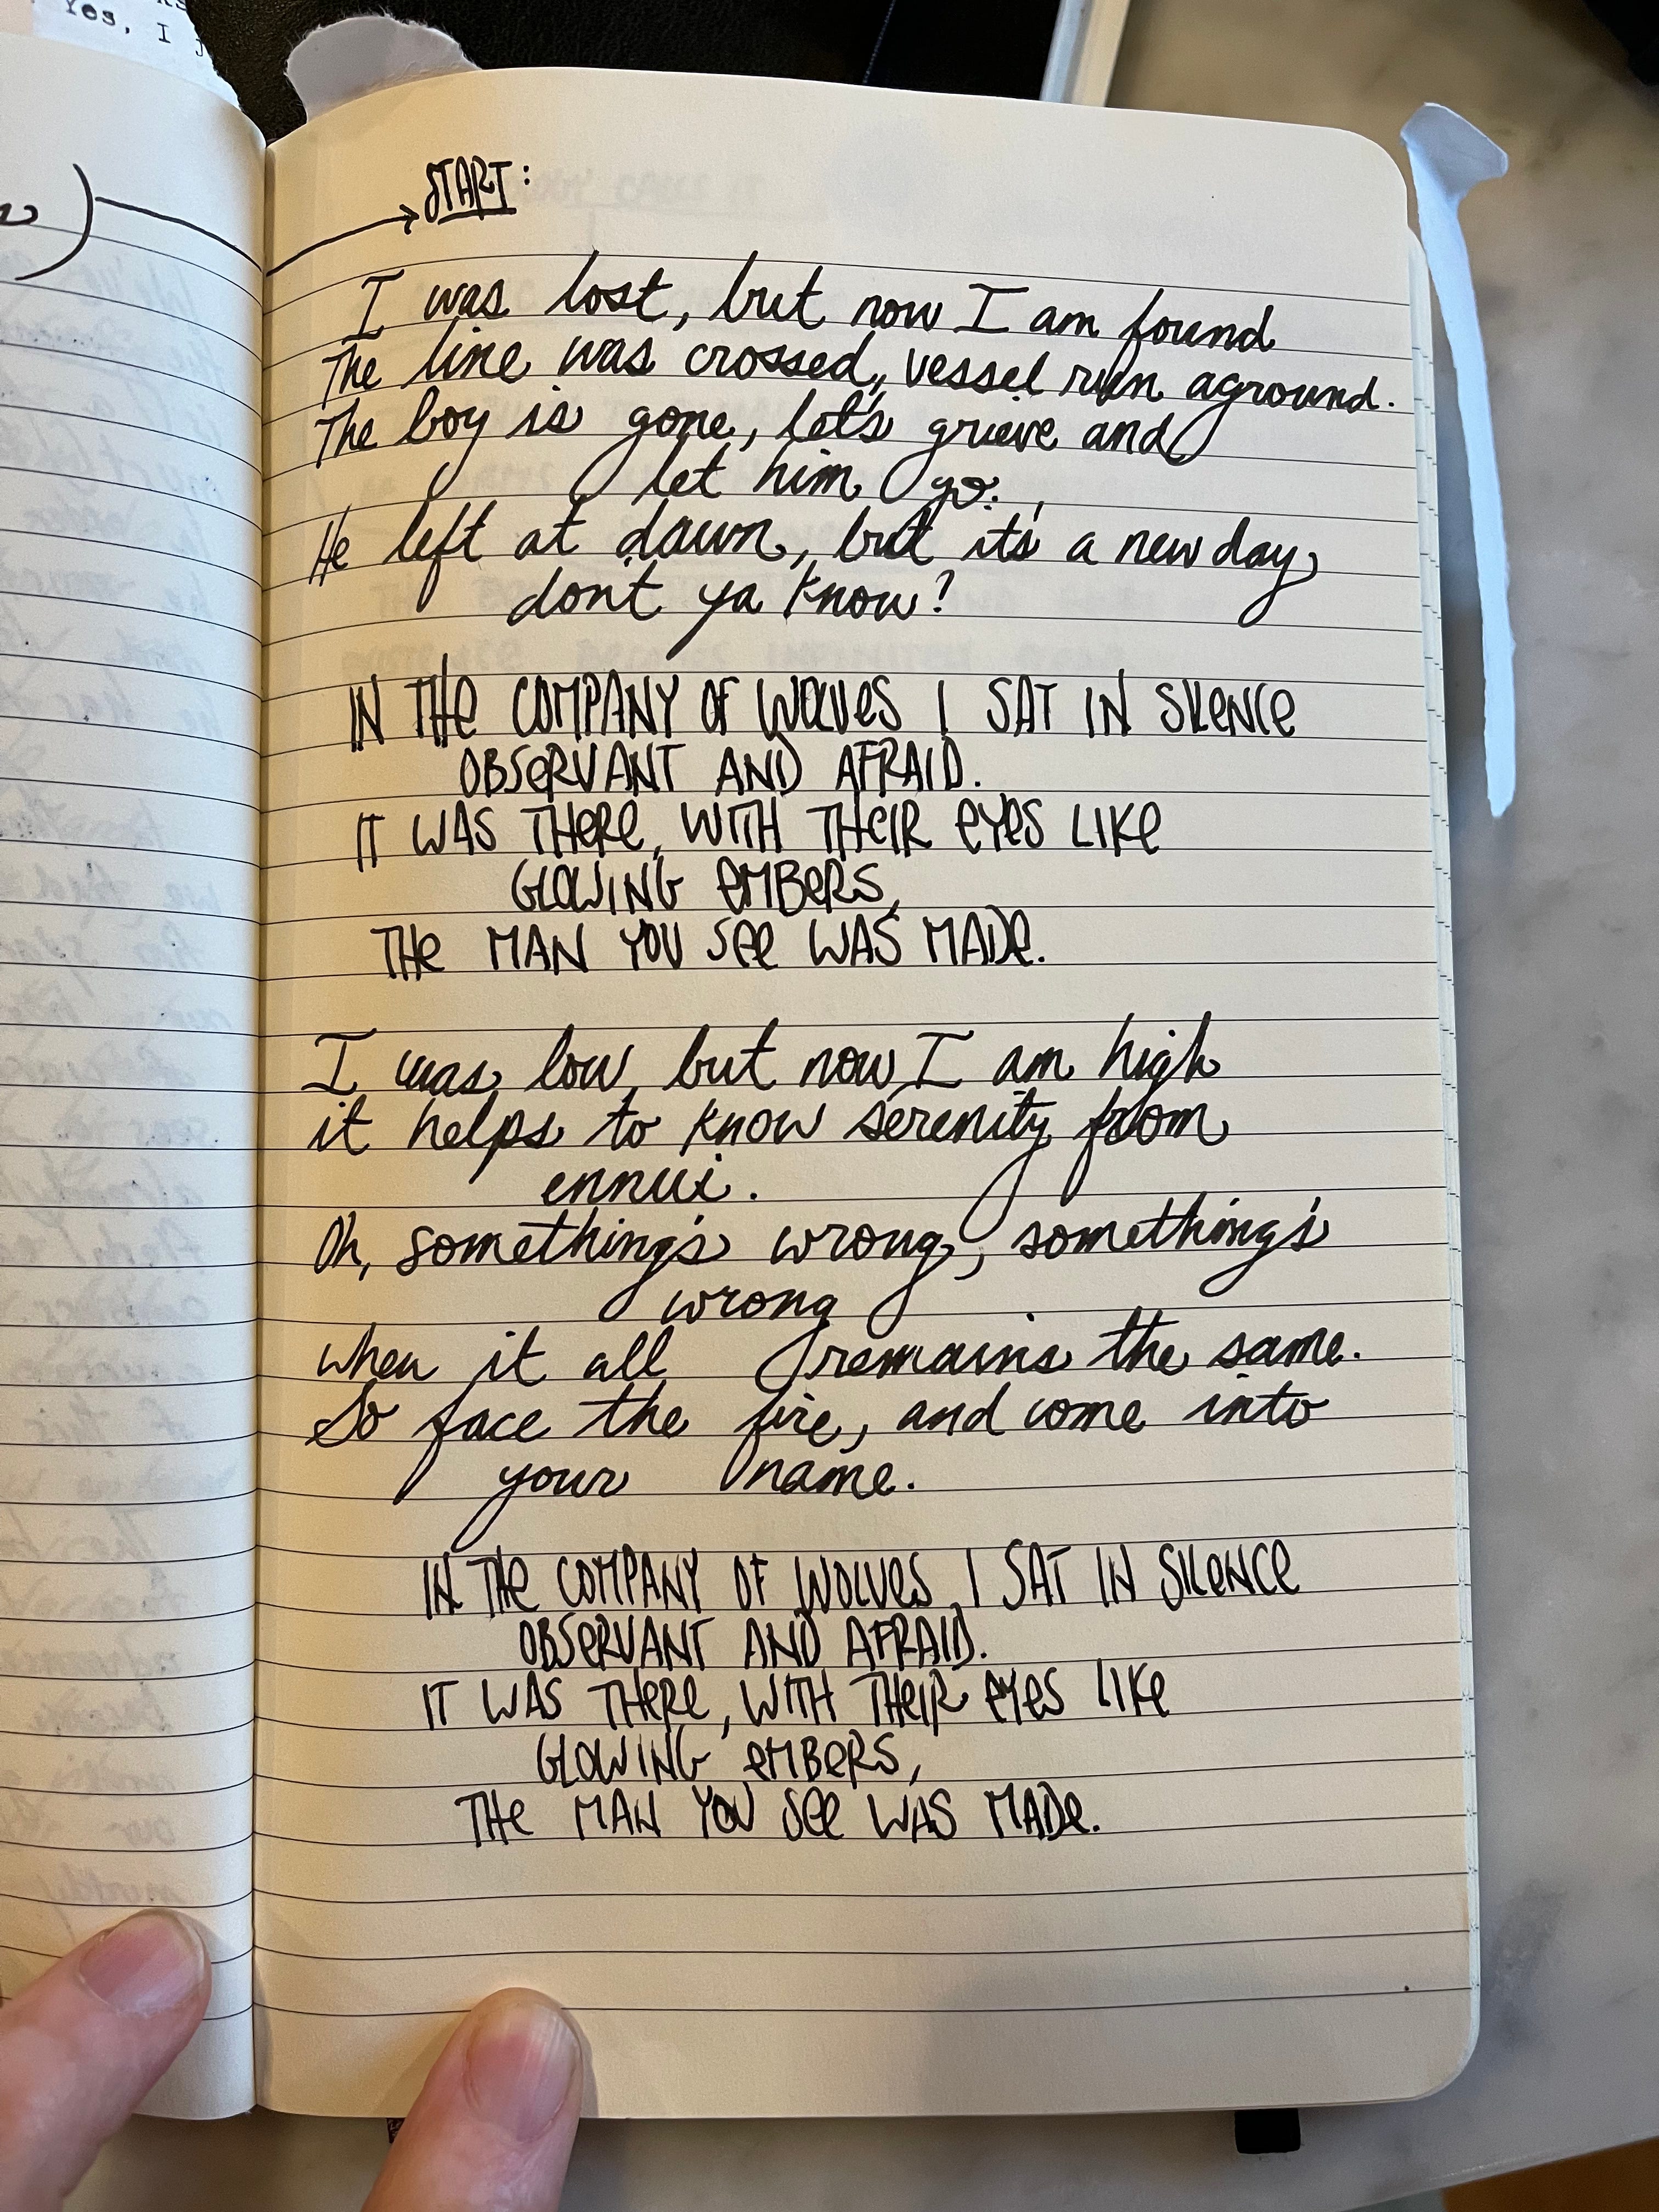 Yes, I
START:
I was lost, but now I am found
The line was crossed, vessel run aground.
The boy is gone, let's grieve and
let him go.
He left at dawn, but it's a new day,
don't ya know?
IN THE COMPANY OF WOLVES I SAT IN SILENCE
OBSERVANT AND AFRAID.
IT WAS THERE, WITH THEIR EYES LIKE
GLOWING EMBERS,
THE MAN YOU SEE WAS MADE.
I was low, but now I am high
it helps to know serenity from
ennui.
Oh, something's wrong, something's
wrong
when it all remains the same.
So face the fire, and come into
your name.
IN THE COMPANY OF WOLVES I SAT IN SILENCE
OBSERVANT AND AFRAID.
IT WAS THERE, WITH THEIR EYES LIKE
GLOWING EMBERS,
THE MAN YOU SEE WAS MADE.